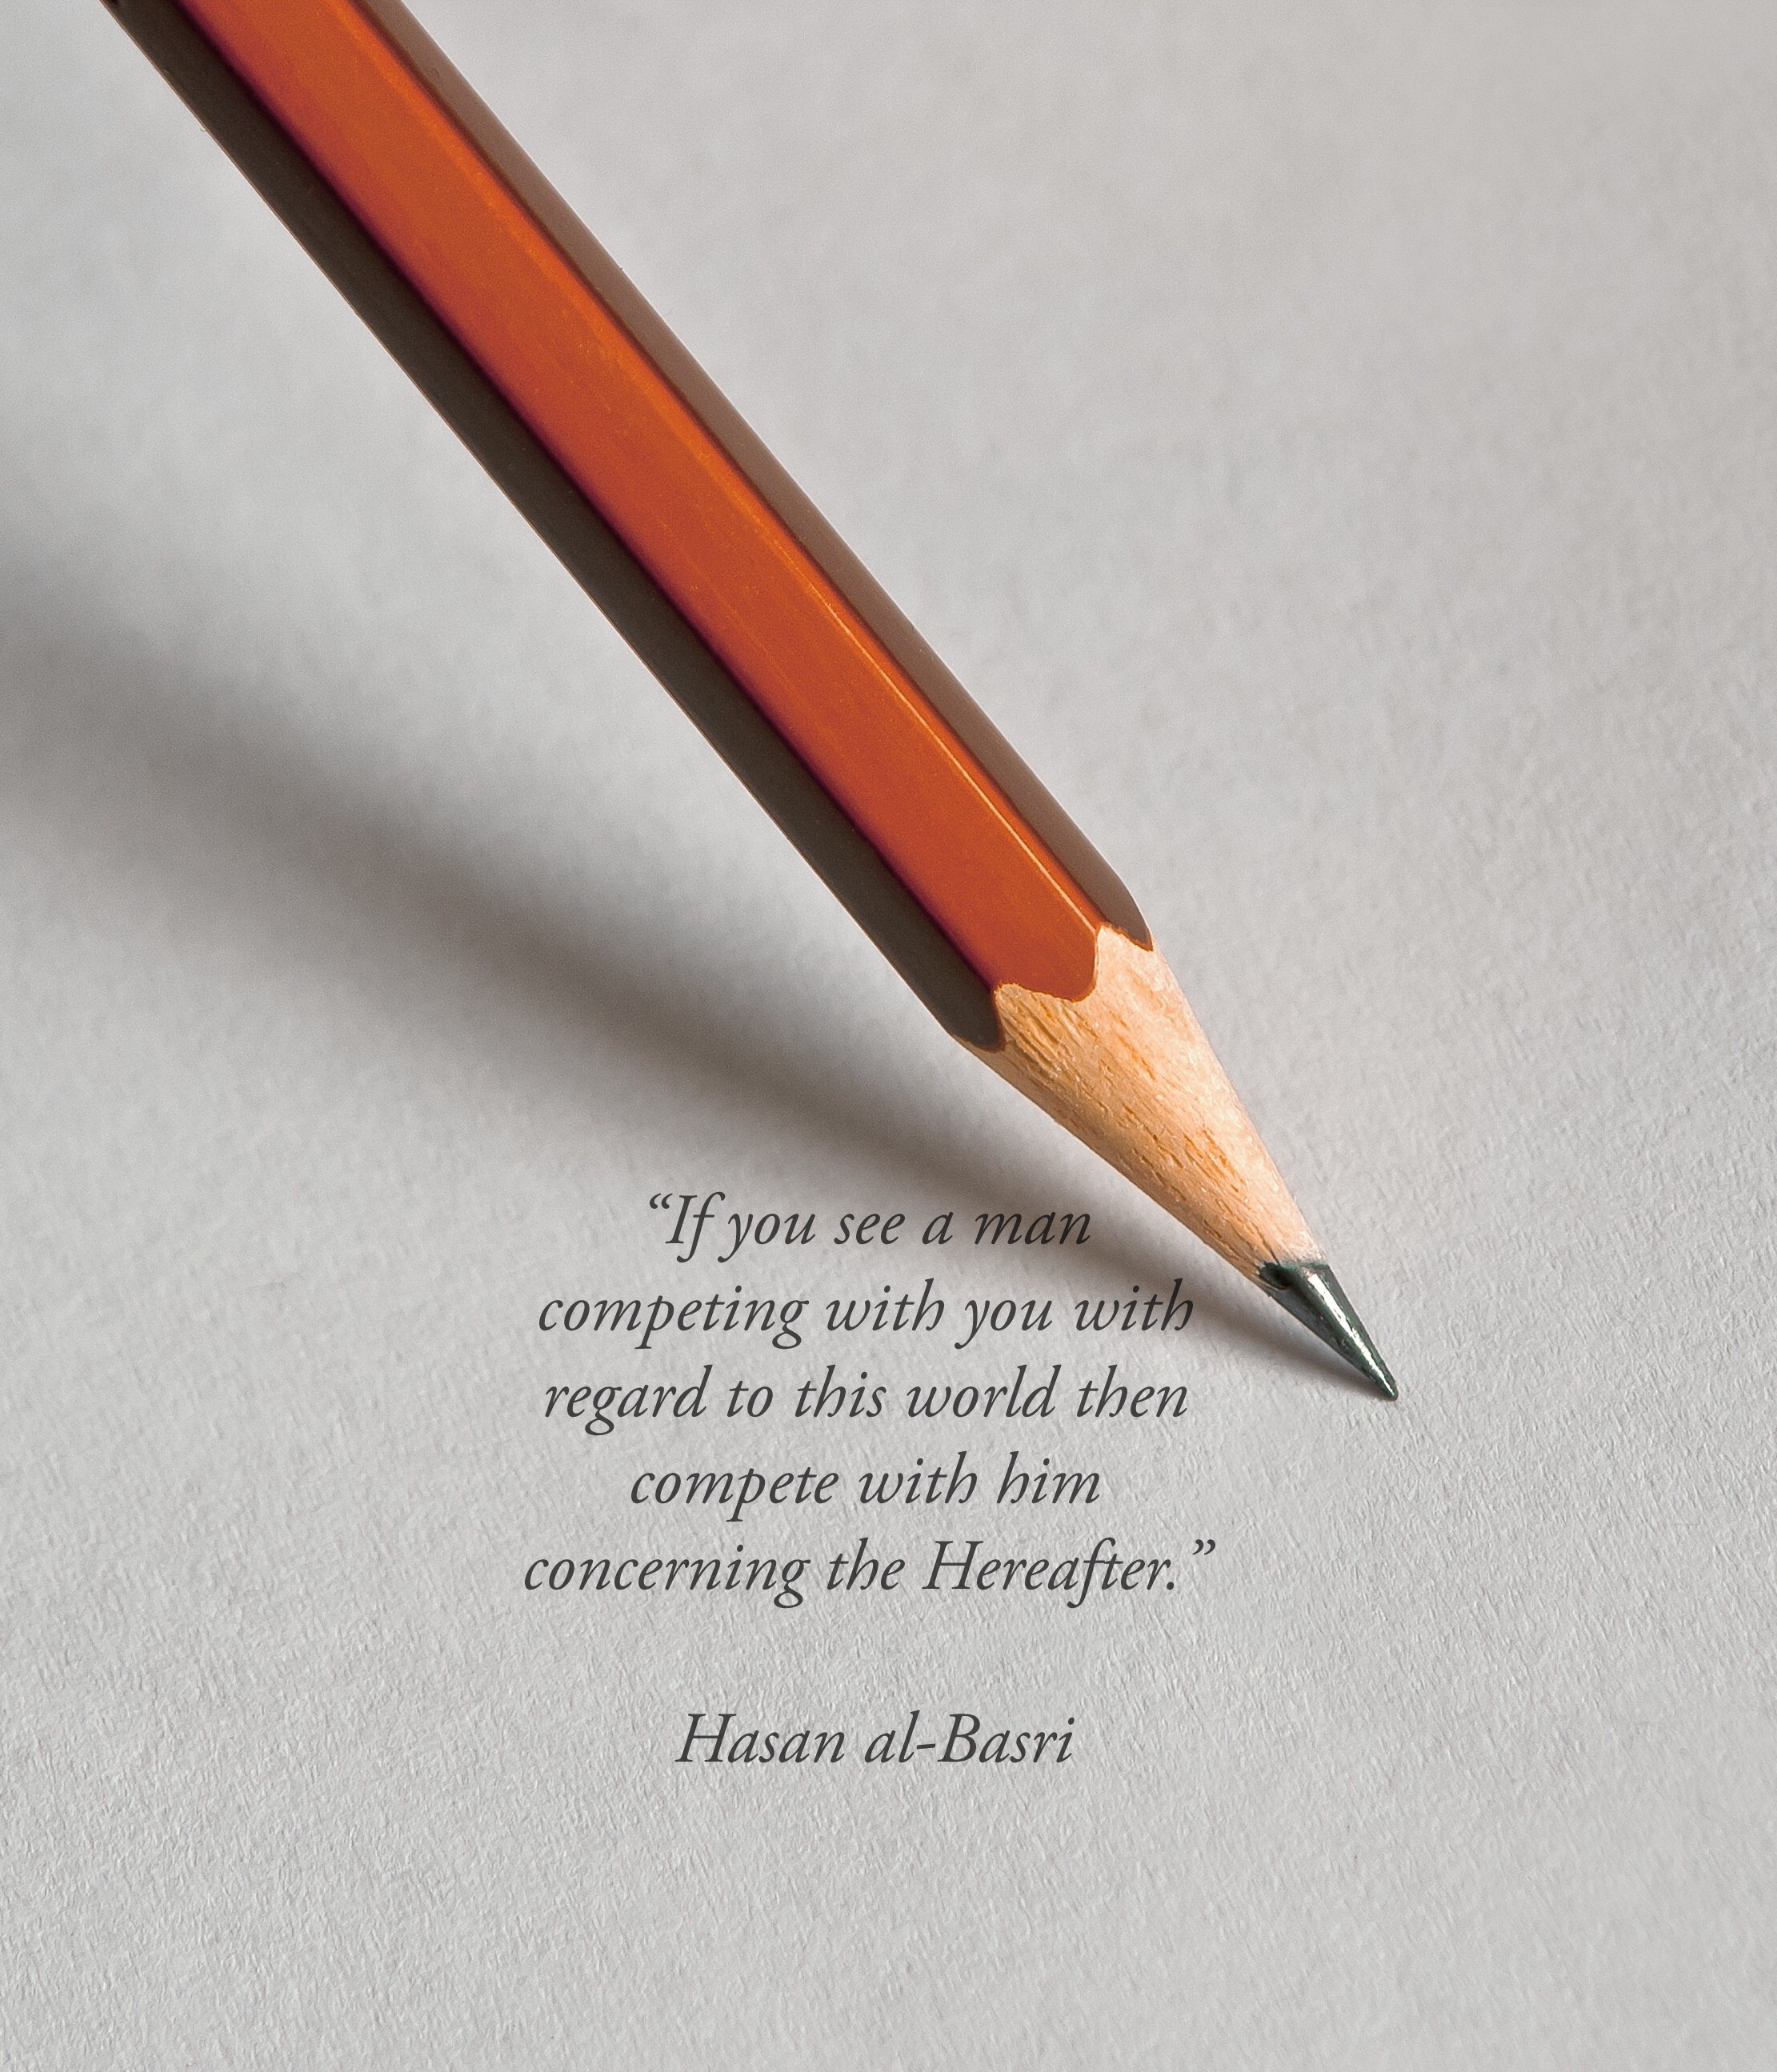 “If you see a man
competing with you with
regard to this world then
compete with him
concerning the Hereafter.”
Hasan al-Basri